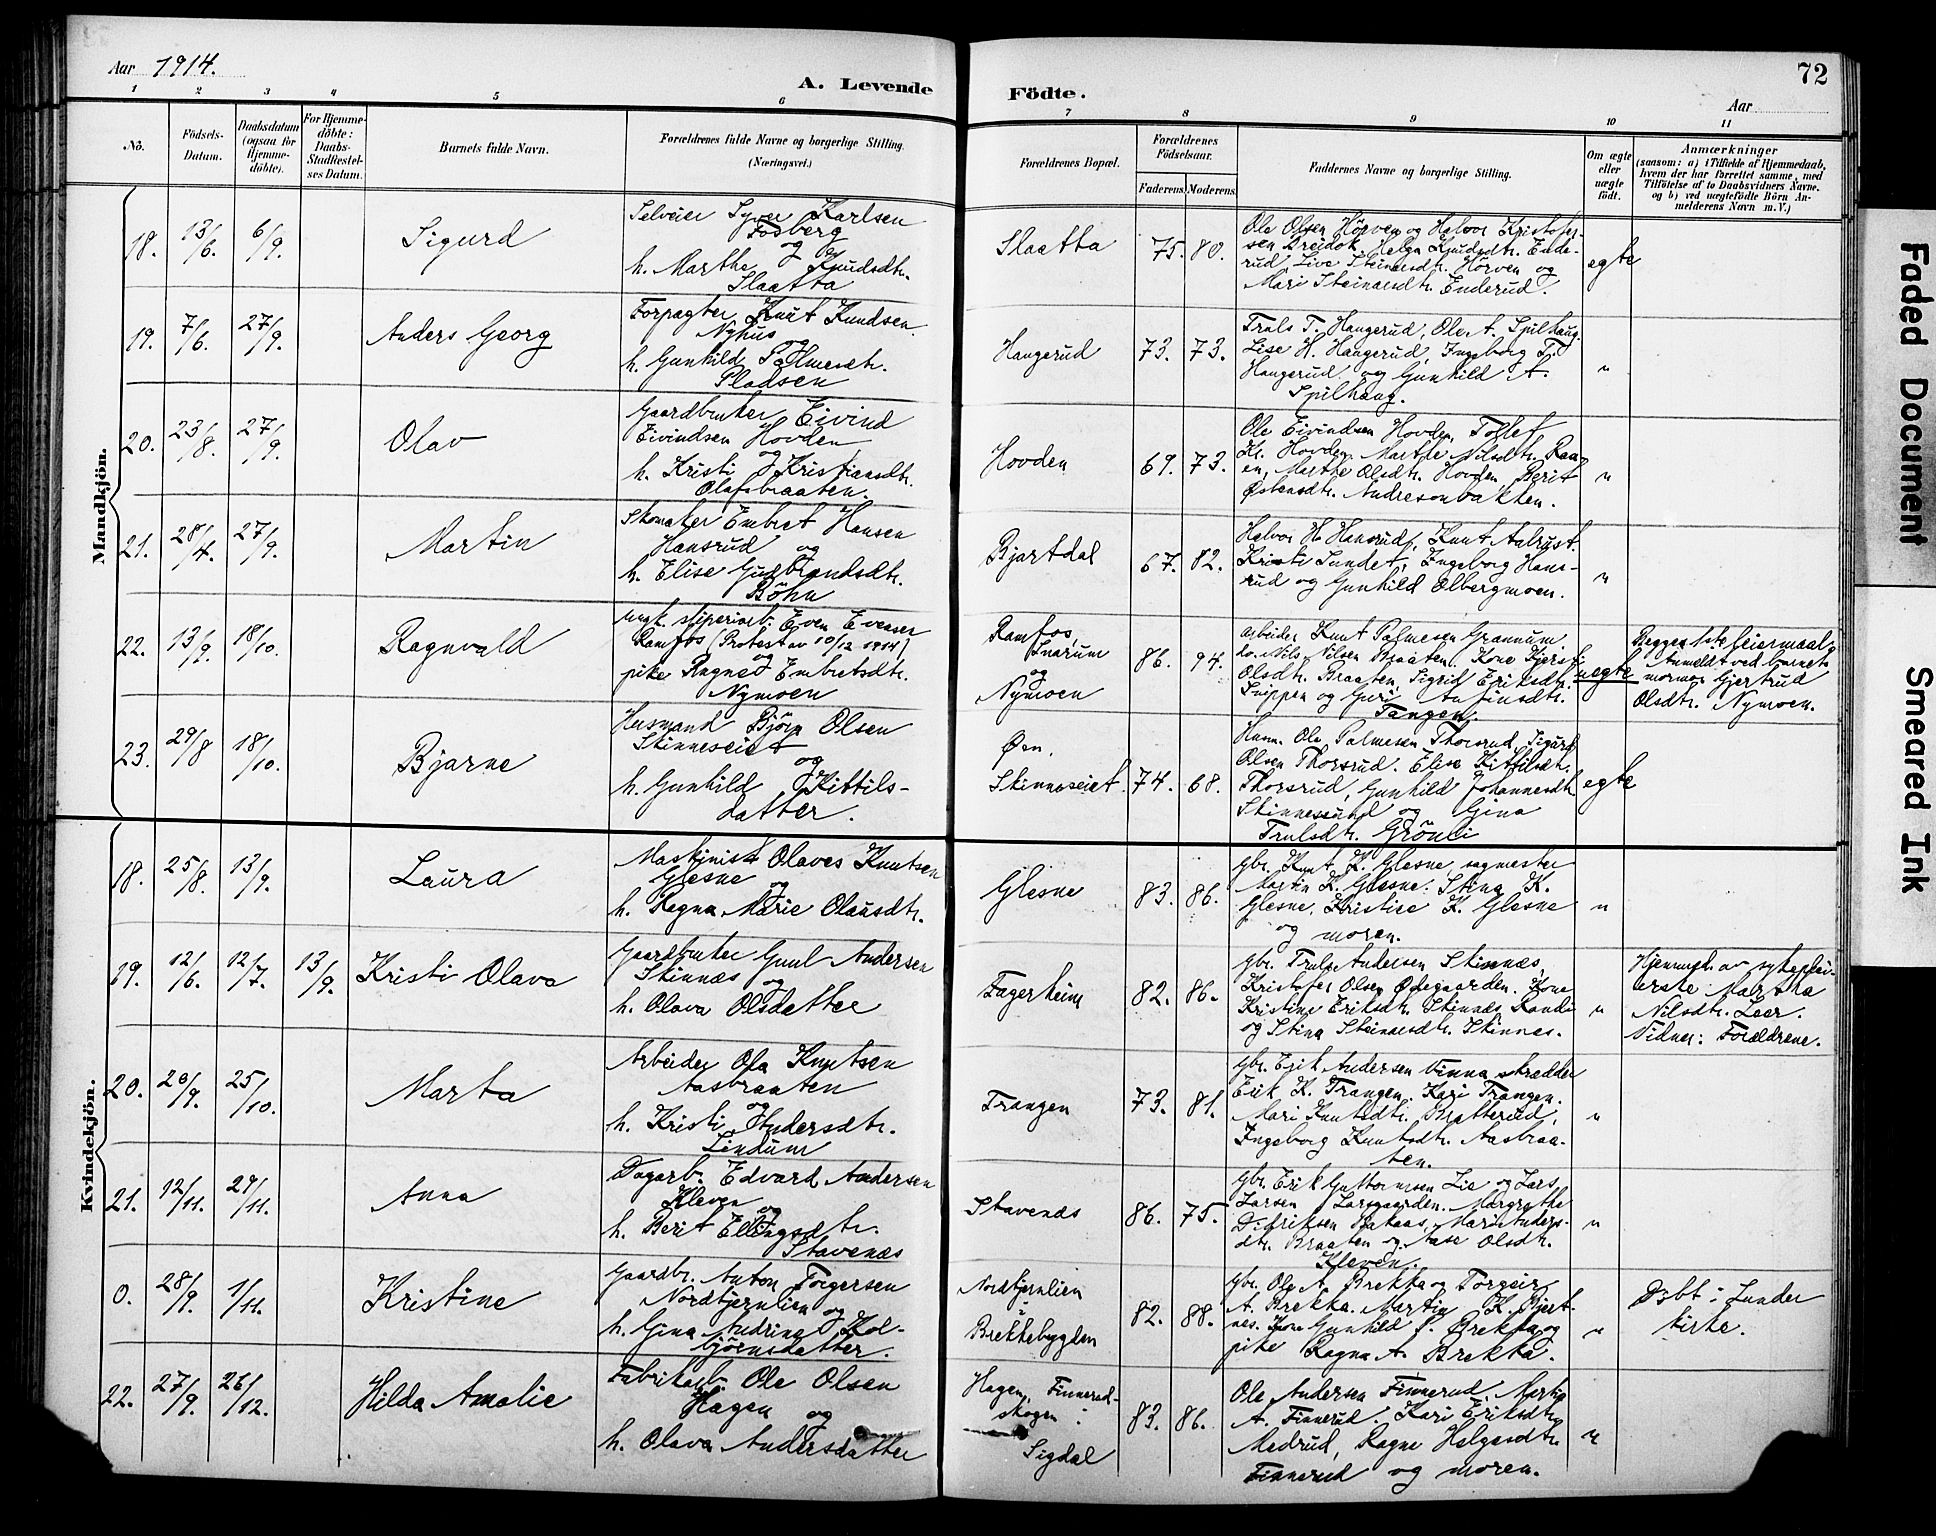 Aar 1914.
A. Levende
Födte.
72
Aar
1 2 3 4 5 6 7 8 9 10 11
No.
Födsels-
Datum.
Daabsdatum
(ogsaa for
Hjemme-
döbte).
For Hjemme-
döbte:
Daabs-
Stadfæstel-
ses Datum.
Barnets fulde Navn.
Forældrenes fulde Navne og borgerlige Stilling.
(Næringsvei.)
Forældrenes Bopæl.
Forældrenes
Födselsaar.
Faderens. Moderens.
Faddernes Navne og borgerlige Stilling.
Om ægte
eller
uægte
födt.
Anmærkninger
(saasom: a) i Tilfælde af Hjemmedaab,
hvem der har forrettet samme, med
Tilföielse af to Daabsvidners Navne.
og b) ved uægtefödte Börn An-
melderens Navn m.V.)
Mandkjön.
18. 13/6. 6/9. Sigurd
Selveier Syver Karlsen
Fosberg
og
h. Marthe Knudsdtr.
Slaatta
Slaatta 75. 80.
Ole Olsen Hörven og Halvor Kristofer-
sen Breidok, Helga Knudsdtr. Ende-
rud, Live Steinarsdtr. Hörven og
Mari Steinarsdtr. Enderud.
egte
19. 7/6. 27/9. Anders Georg
Forpagter Knut Knudsen
Nyhus
og
h. Gunhild Palmesdtr.
Pladsen
Haugerud 73. 73.
Truls T. Haugerud, Ole A. Spilhaug.
Lise H. Haugerud, Ingeborg T.
Haugerud og Gunhild A.
Spilhaug.
"
20. 23/8. 27/9. Olav
Gaardbruker Eivind
Eivindsen Hovden
og
h. Kristi Kristiansdtr.
Olafsbraaten.
Hovden 69. 73.
Ole Eivindsen Hovden, Tollef
Kr. Hovden. Marthe Nilsdtr. Raa-
en, Marthe Olsdtr. Hovden, Berit
Østensdtr. Andresonbakken.
"
21. 28/4. 27/9. Martin
Skomaker Embret Hansen
Hansrud og
h. Elise Gulbrandsdtr.
Böhn
Bjartdal 67. 82.
Halvor H. Hansrud, Knut Aalrust.
Kristi Sundet, Ingeborg Hans-
rud og Gunhild Ølbergmoen.
"
22. 13/9. 18/10. Ragnvald
ungk. sliperiarb. Even Evensen
Ramfos (Protest av 10/12 1914)
og
pike Ragne Embretsdtr.
Nymoen
Ramfos,
Snarum
og
Nymoen 86. 94.
arbeider Knut Palmesen Grannum
do. Nils Nilsen Braaten. Kone Kjersti
Olsdtr. Braaten, Sigrid Eriksdtr.
Snippen og Guri Anfinsdtr.
Tangen
uegte
Begges 1ste leiermaal.
Anmeldt ved barnets
mormor Gjertrud
Olsdtr. Nymoen.
23. 29/8 18/10. Bjarne
Husmand Björn Olsen
Skinneseiet
og
h. Gunhild Kittils-
datter.
Øen,
Skinneseiet. 74. 68.
Husm. Ole Palmesen Thorsrud, Sigurd
Olsen Thorsrud. Elise Kittilsdt.
Thorsrud, Gunhild Johannesdt
Skinnessund og Gina
Trulsdtr. Grönli
egte
Kvindekjön.
18. 25/8. 13/9. Laura
Maskinist Olaves Knutsen
Glesne
og
h. Regna Marie Olausdtr.
Glesne 83. 86.
Gbr. Knut K. Glesne, sagmester
Martin K. Glesne. Stina K.
Glesne, Kristise K. Glesne
og moren.
"
19. 12/6. 12/7. 13/9. Kristi Olava
Gaardbruker Guul Andersen
Skinnæs og
h. Olava Olsdatter
Fagerheim 82. 86.
Gbr. Truls Andersen Skinnæs,
Kristofer Olsen Ødegaarden. Kone
Kristine Eriksdtr. Skinnæs, Randi
og Stina Steinarsdtr. Skinnes.
"
Hjemmed. av sykeplei-
erske Martha
Nilsdtr. Leer.
Vidner: Forældrene.
20. 20/9. 25/10. Marta
Arbeider Ola Knutsen
Aasbraaten
og
h. Kristi Andersdtr.
Lindum
Trangen 73. 81.
Gbr. Erik Andersen Vinna skrædder
Erik K. Trangen. Kari Trangen.
Mari Knutsdtr. Bratterud,
Ingeborg Knutsdtr. Aasbraa-
ten.
"
21. 12/11. 29/11. Anna
Dagarb. Edvard Andersen
Kleven
og
h. Berit Ellingsdtr.
Stavenæs
Stavenæs 86. 75.
Gbr. Erik Guttormsen Lie og Lars
Larsen Larsgaarden. Margrethe
Didriksen Mari Anders-
dtr. Braaten og Aase Olsdtr.
Kleven.
"
0. 28/9. 1/11. Kristine
Gaardbr. Anton Torgersen
Nordbjernlien og
h. Gina Andrina Kol-
björnsdatter.
Nordbjernlien
i
Brekkebygden 82. 88.
Gbr. Ole A. Brekka og Torgeir
A. Brekka. Martin K. Bjert-
nes. Kone Gunhild S. Brekka og
pike Ragna A. Brekka.
"
Döbt i Lunder
kirke.
22. 27/9. 26/12. Hilda Amalie
Fabrikarb. Ole Olsen
Hagen og
h. Olava Andersdatter
Hagen, Finnerud-
skogen i
Sigdal 83. 86.
Ole Andersen Finnerud, Martin
A. Finnerud. Kari Eriksdtr.
Medrud, Ragne Helgesdtr.
Finnerud og moren.
"
Faded Document
Smeared Ink